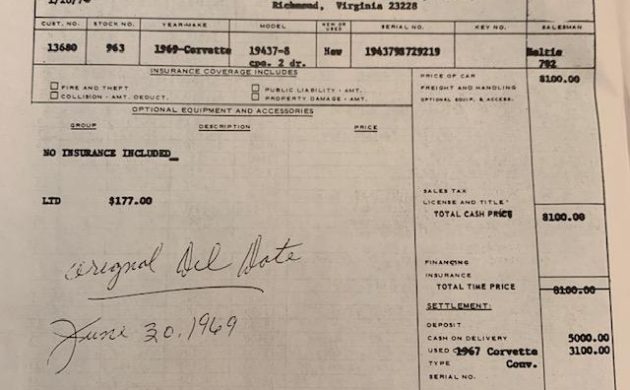 Richmond, Virginia 23228
CUST. NO. STOCK NO. YEAR-MAKE MODEL NEW OR USED SERIAL NO. KEY NO. SALESMAN
13680 963 1969-Corvette 19437-8 New 194379S729219
cpe. 2 dr. 792
INSURANCE COVERAGE INCLUDES
FIRE AND THEFT PUBLIC LIABILITY - AMT.
COLLISION - AMT. DEDUCT. PROPERTY DAMAGE - AMT.
OPTIONAL EQUIPMENT AND ACCESSORIES
GROUP DESCRIPTION PRICE
NO INSURANCE INCLUDED
LTD $177.00
orignal Del Date
June 20. 1969
PRICE OF CAR 8100.00
FREIGHT AND HANDLING
OPTIONAL EQUIP. & ACCESS.
SALES TAX
LICENSE AND TITLE
TOTAL CASH PRICE 8100.00
FINANCING
INSURANCE
TOTAL TIME PRICE 8100.00
SETTLEMENT:
DEPOSIT
CASH ON DELIVERY 5000.00
USED 1967 Corvette 3100.00
TYPE Conv.
SERIAL NO.